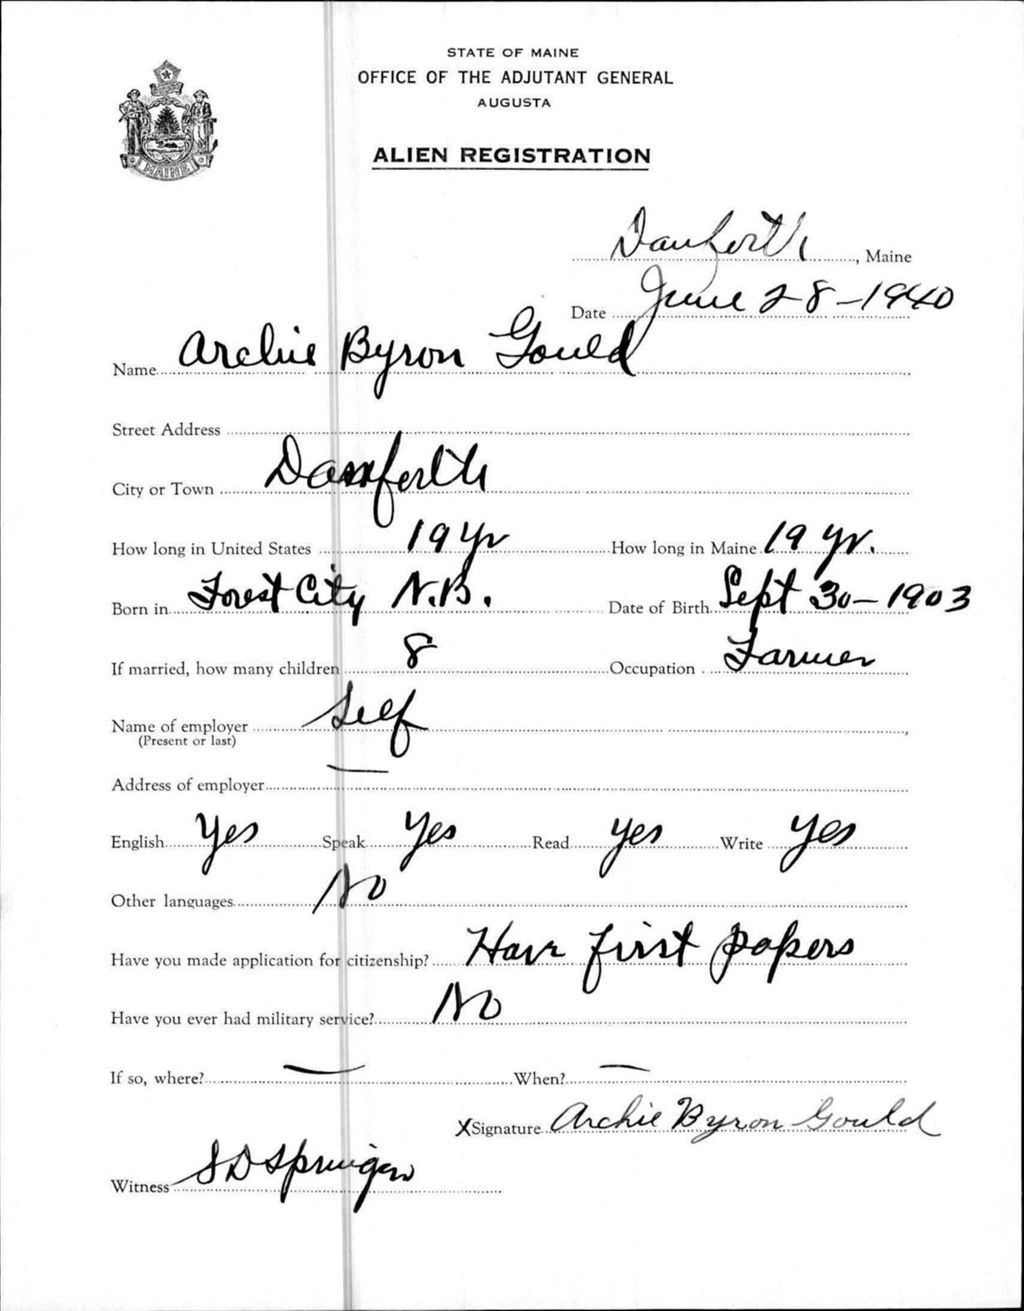 STATE OF MAINE
OFFICE OF THE ADJUTANT GENERAL
AUGUSTA
ALIEN REGISTRATION
MAINE
Danforth, Maine
Date June 28-1940
Name Archie Byron Gould
Street Address
City or Town Danforth
How long in United States 19 yr How long in Maine 19 yr.
Born in Forest City N.B. Date of Birth Sept 30-1903
If married, how many children 8 Occupation Farmer
Name of employer Self
(Present or last)
Address of employer —
English Yes Speak Yes Read yes Write yes
Other languages No
Have you made application for citizenship? Have first papers
Have you ever had military service? No
If so, where? — When? —
X Signature Archie Byron Gould
Witness S D Springer